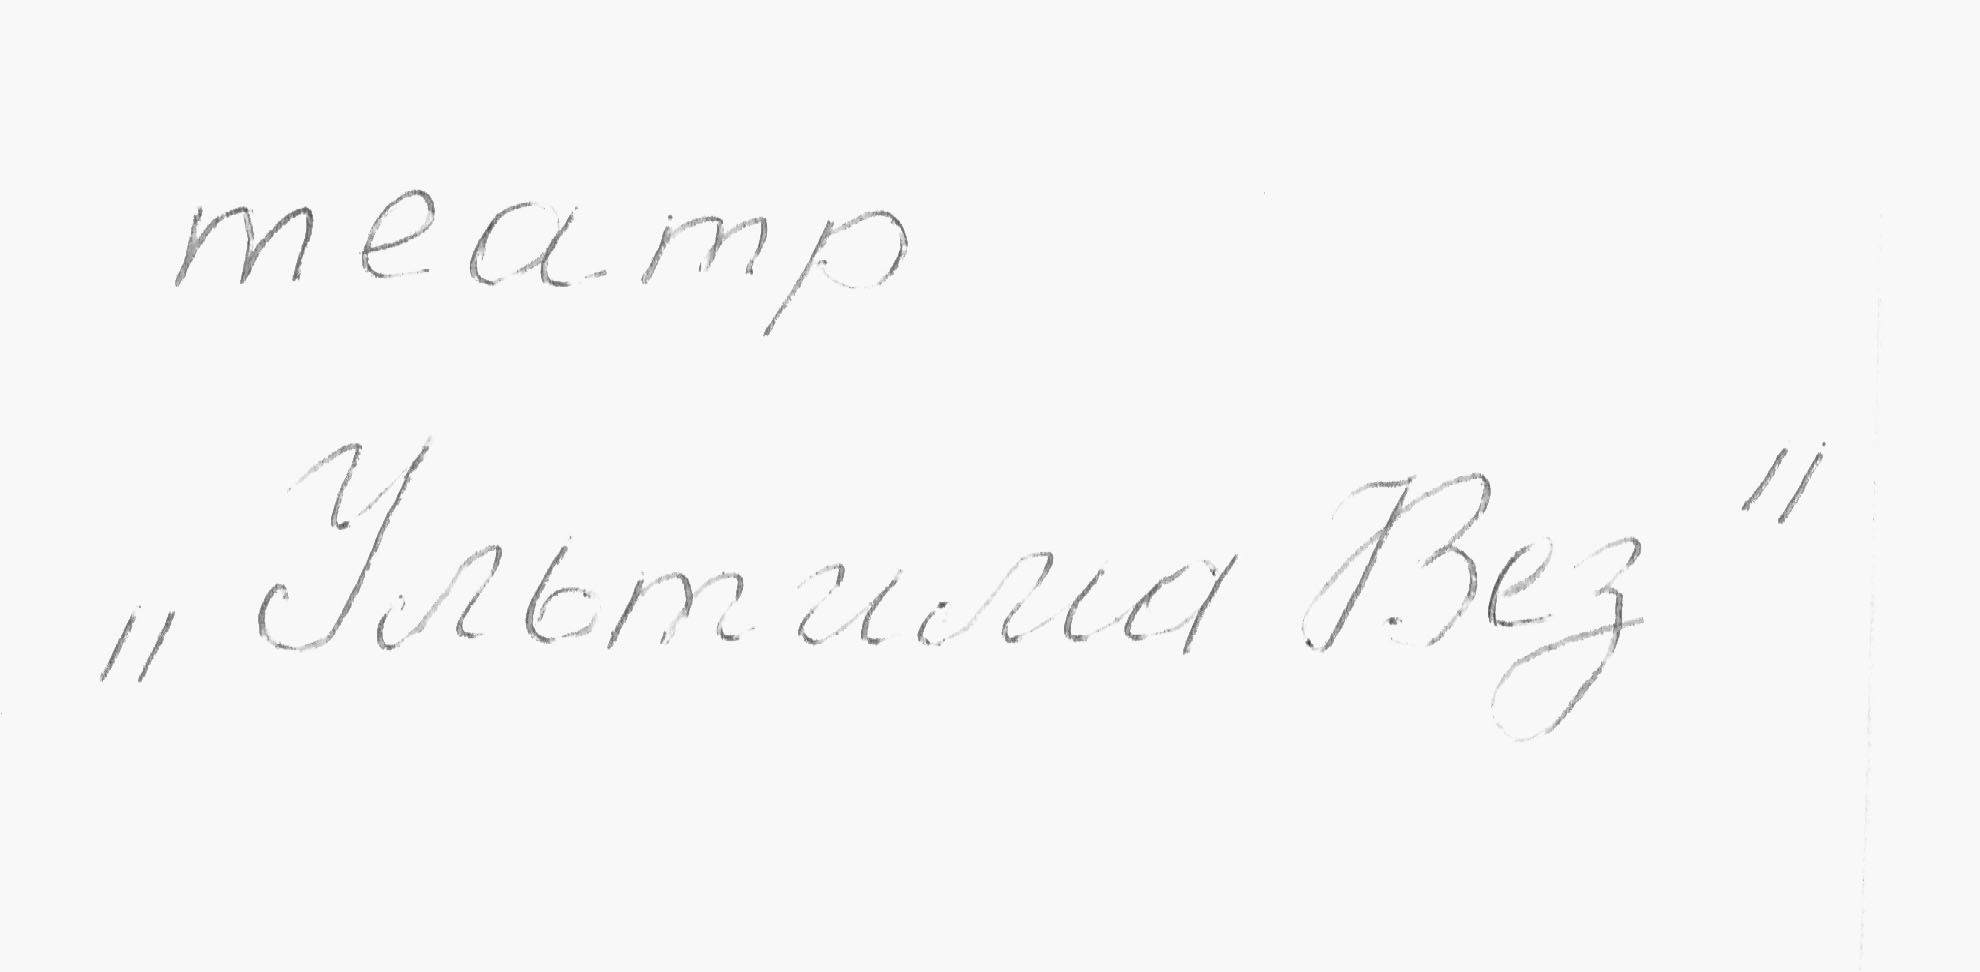 театр
„Ультима Вез"